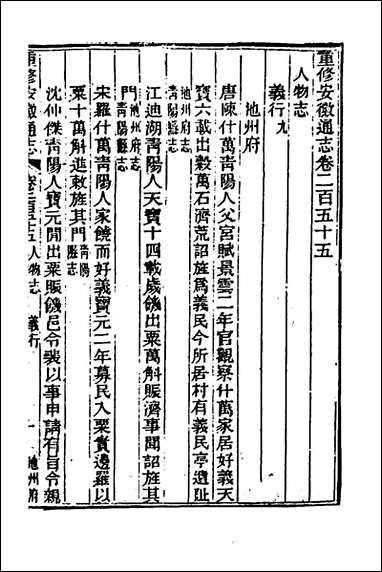 重修安徽通志卷二百五十五
人物志
義行九
池州府
唐陳什萬靑陽人父宮賦景雲二年官觀察什萬家居好義天
寶六載出穀萬石濟荒詔旌為義民今所居村有義民亭遺址
池州府志
靑陽縣志
江迪湖靑陽人天寶十四載歲饑出粟萬斛賑濟事聞詔旌其
門池州府志
靑陽縣志
宋羅什萬靑陽人家饒而好義寶元二年募民入粟實邊羅以
粟十萬斛進敕旌其門靑陽
縣志
沈仲傑靑陽人寶元閒出粟賑饑邑令裴以事申請有旨令親
重修安徽通志
卷二百五十五人物志
義行
一
池州府